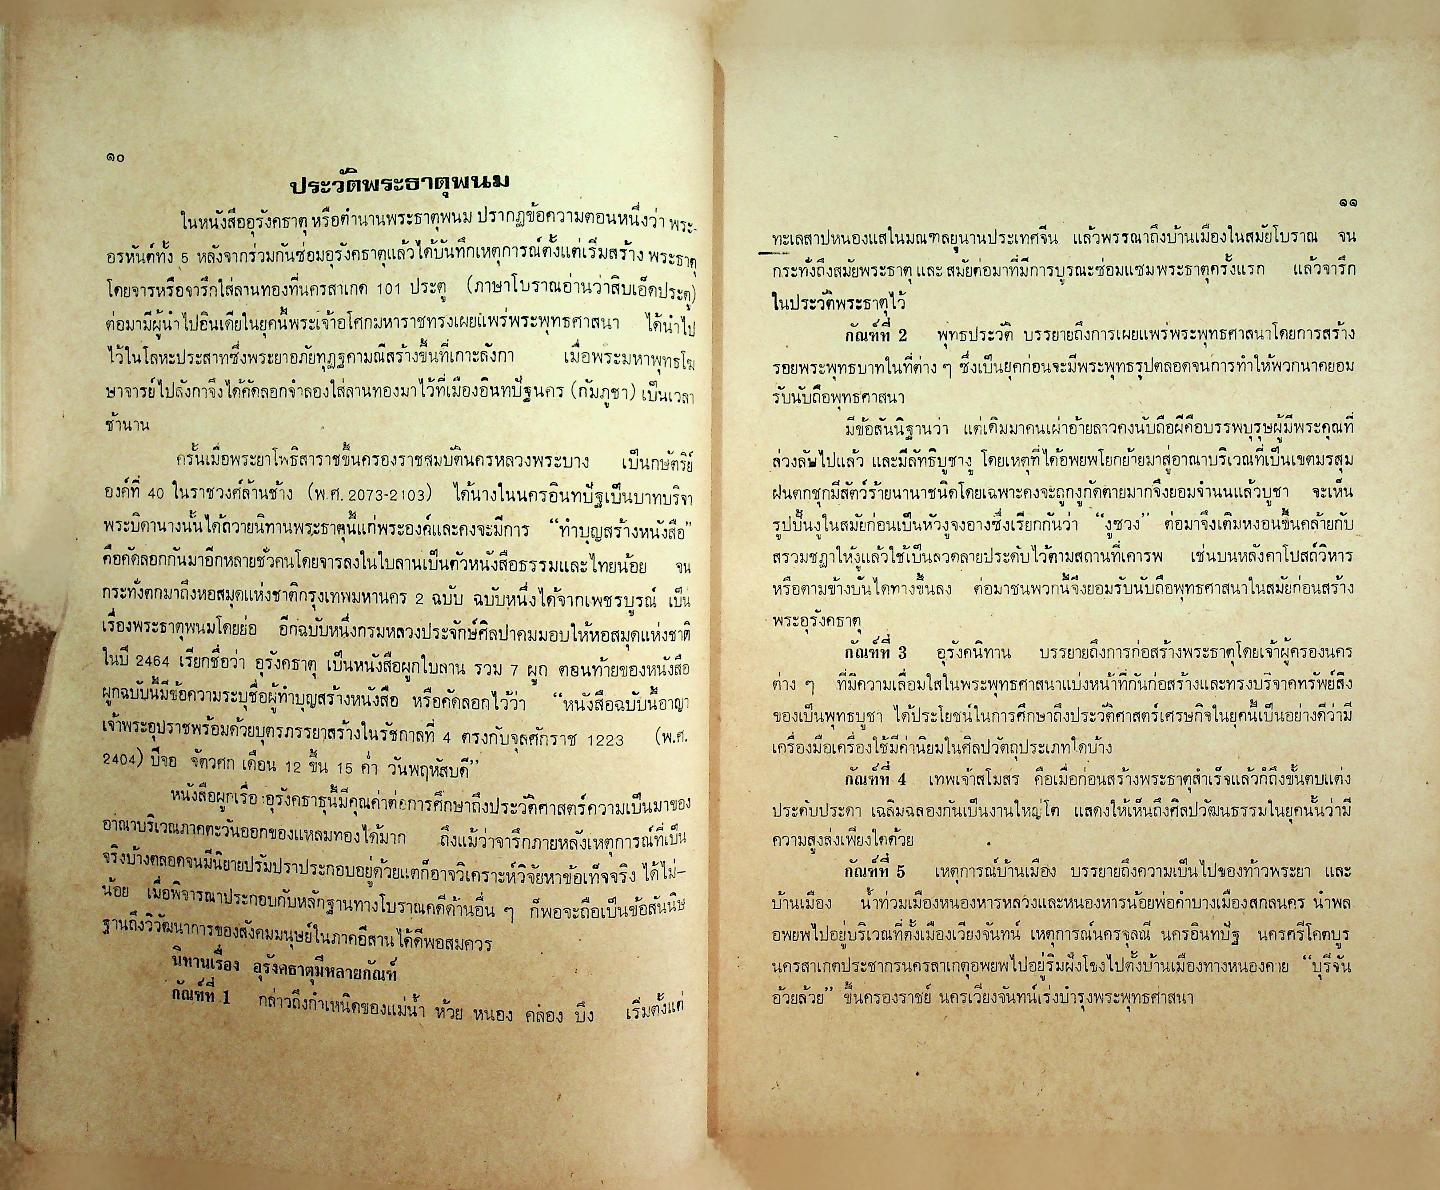 ๑๐
ประวัติพระธาตุพนม
ในหนังสืออุรังคธาตุ หรือตำนานพระธาตุพนม ปรากฏข้อความตอนหนึ่งว่า พระ-
อรหันต์ทั้ง 5 หลังจากร่วมกันซ่อมอุรังคธาตุแล้วได้บันทึกเหตุการณ์ตั้งแต่เริ่มสร้าง พระธาตุ
โดยจารหรือจารึกใส่ลานทองที่นครสาเกต 101 ประตู (ภาษาโบราณอ่านว่าสิบเอ็ดประตู)
ต่อมามีผู้นำไปอินเดียในยุคนี้พระเจ้าอโศกมหาราชทรงเผยแพร่พระพุทธศาสนา ได้นำไป
ไว้ในโลหะประสาทซึ่งพระยาอภัยทุฏฐคามณีสร้างขึ้นที่เกาะลังกา เมื่อพระมหาพุทธโฆ
ษาจารย์ไปลังกาจึงได้คัดลอกจำลองใส่ลานทองมาไว้ที่เมืองอินทปัฐนคร (กัมภูชา) เป็นเวลา
ช้านาน
ครั้นเมื่อพระยาโพธิสาราชขึ้นครองราชสมบัตินครหลวงพระบาง เป็นกษัตริย์
องค์ที่ 40 ในราชวงศ์ล้านช้าง (พ.ศ. 2073-2103) ได้นางในนครอินทปัฐเป็นบาทบริจา
พระบิดานางนั้นได้ถวายนิทานพระธาตุนี้แก่พระองค์และคงจะมีการ “ทำบุญสร้างหนังสือ”
คือคัดลอกกันมาอีกหลายชั่วคนโดยจารลงในใบลานเป็นตัวหนังสือธรรมและไทยน้อย จน
กระทั่งตกมาถึงหอสมุดแห่งชาติกรุงเทพมหานคร 2 ฉบับ ฉบับหนึ่งได้จากเพชรบูรณ์ เป็น
เรื่องพระธาตุพนมโดยย่อ อีกฉบับหนึ่งกรมหลวงประจักษ์ศิลปาคมมอบให้หอสมุดแห่งชาติ
ในปี 2464 เรียกชื่อว่า อุรังคธาตุ เป็นหนังสือผูกใบลาน รวม 7 ผูก ตอนท้ายของหนังสือ
ผูกฉบับนี้มีข้อความระบุชื่อผู้ทำบุญสร้างหนังสือ หรือคัดลอกไว้ว่า “หนังสือฉบับนี้อาญา
เจ้าพระอุปราชพร้อมด้วยบุตรภรรยาสร้างในรัชกาลที่ 4 ตรงกับจุลศักราช 1223 (พ.ศ.
2404) ปีจอ จัตวศก เดือน 12 ขึ้น 15 ค่ำ วันพฤหัสบดี”
หนังสือผูกเรื่องอุรังคธาธุนี้มีคุณค่าต่อการศึกษาถึงประวัติศาสตร์ความเป็นมาของ
อาณาบริเวณภาคตะวันออกของแหลมทองได้มาก ถึงแม้ว่าจารึกภายหลังเหตุการณ์ที่เป็น
จริงบ้างตลอดจนมีนิยายปรัมปราประกอบอยู่ด้วยแต่ก็อาจวิเคราะห์วิจัยหาข้อเท็จจริง ได้ไม่-
น้อย เมื่อพิจารณาประกอบกับหลักฐานทางโบราณคดีด้านอื่น ๆ ก็พอจะถือเป็นข้อสันนิษ
ฐานถึงวิวัฒนาการของสังคมมนุษย์ในภาคอีสานได้ดีพอสมควร
นิทานเรื่อง อุรังคธาตุมีหลายกัณฑ์
กัณฑ์ที่ 1 กล่าวถึงกำเหนิดของแม่น้ำ ห้วย หนอง คลอง บึง เริ่มตั้งแต่
๑๑
ทะเลสาปหนองแสในมณฑลยูนานประเทศจีน แล้วพรรณาถึงบ้านเมืองในสมัยโบราณ จน
กระทั่งถึงสมัยพระธาตุ และ สมัยต่อมาที่มีการบูรณะซ่อมแซมพระธาตุครั้งแรก แล้วจารึก
ในประวัติพระธาตุไว้
กัณฑ์ที่ 2 พุทธประวัติ บรรยายถึงการเผยแพร่พระพุทธศาสนาโดยการสร้าง
รอยพระพุทธบาทในที่ต่าง ๆ ซึ่งเป็นยุคก่อนจะมีพระพุทธรุปตลอดจนการทำให้พวกนาคยอม
รับนับถือพุทธศาสนา
มีข้อสันนิฐานว่า แต่เดิมมาคนเผ่าอ้ายลาวคงนับถือผีคือบรรพบุรุษผู้มีพระคุณที่
ล่วงลับไปแล้ว และมีลัทธิบูชางู โดยเหตุที่ได้อพยพโยกย้ายมาสู่อาณาบริเวณที่เป็นเขตมรสุม
ฝนตกชุกมีสัตว์ร้ายนานาชนิดโดยเฉพาะคงจะถูกงูกัดตายมากจึงยอมจำนนแล้วบูชา จะเห็น
รูปปั้นงูในสมัยก่อนเป็นหัวงูจงอางซึ่งเรียกกันว่า “งูซวง” ต่อมาจึงเติมหงอนขึ้นคล้ายกับ
สรวมชฎาให้งูแล้วใช้เป็นลวดลายประดับไว้ตามสถานที่เคารพ เช่นบนหลังคาโบสถ์วิหาร
หรือตามข้างบันไดทางขึ้นลง ต่อมาชนพวกนี้จึงยอมรับนับถือพุทธศาสนาในสมัยก่อนสร้าง
พระอุรังคธาตุ
กัณฑ์ที่ 3 อุรังคนิทาน บรรยายถึงการก่อสร้างพระธาตุโดยเจ้าผู้ครองนคร
ต่าง ๆ ที่มีความเลื่อมใสในพระพุทธศาสนาแบ่งหน้าที่กันก่อสร้างและทรงบริจาคทรัพย์สิ่ง
ของเป็นพุทธบูชา ได้ประโยชน์ในการศึกษาถึงประวัติศาสตร์เศรษกิจในยุคนี้เป็นอย่างดีว่ามี
เครื่องมือเครื่องใช้มีค่านิยมในศิลปวัตถุประเภทใดบ้าง
กัณฑ์ที่ 4 เทพเจ้าสโมสร คือเมื่อก่อนสร้างพระธาตุสำเร็จแล้วก็ถึงขั้นตบแต่ง
ประดับประดา เฉลิมฉลองกันเป็นงานใหญ่โต แสดงให้เห็นถึงศิลปวัฒนธรรมในยุคนั้นว่ามี
ความสูงส่งเพียงใดด้วย
กัณฑ์ที่ 5 เหตุการณ์บ้านเมือง บรรยายถึงความเป็นไปของท้าวพระยา และ
บ้านเมือง น้ำท่วมเมืองหนองหารหลวงและหนองหารน้อยพ่อคำบางเมืองสกลนคร นำพล
อพยพไปอยู่บริเวณที่ตั้งเมืองเวียงจันทน์ เหตุการณ์นครจุลณี นครอินทปัฐ นครศรีโคตบูร
นครสาเกตประชากรนครสาเกตุอพยพไปอยู่ริมฝั่งโขงไปตั้งบ้านเมืองทางหนองคาย “บุรีจัน
อ้วยล้วย” ขึ้นครองราชย์ นครเวียงจันทน์เร่งบำรุงพระพุทธศาสนา